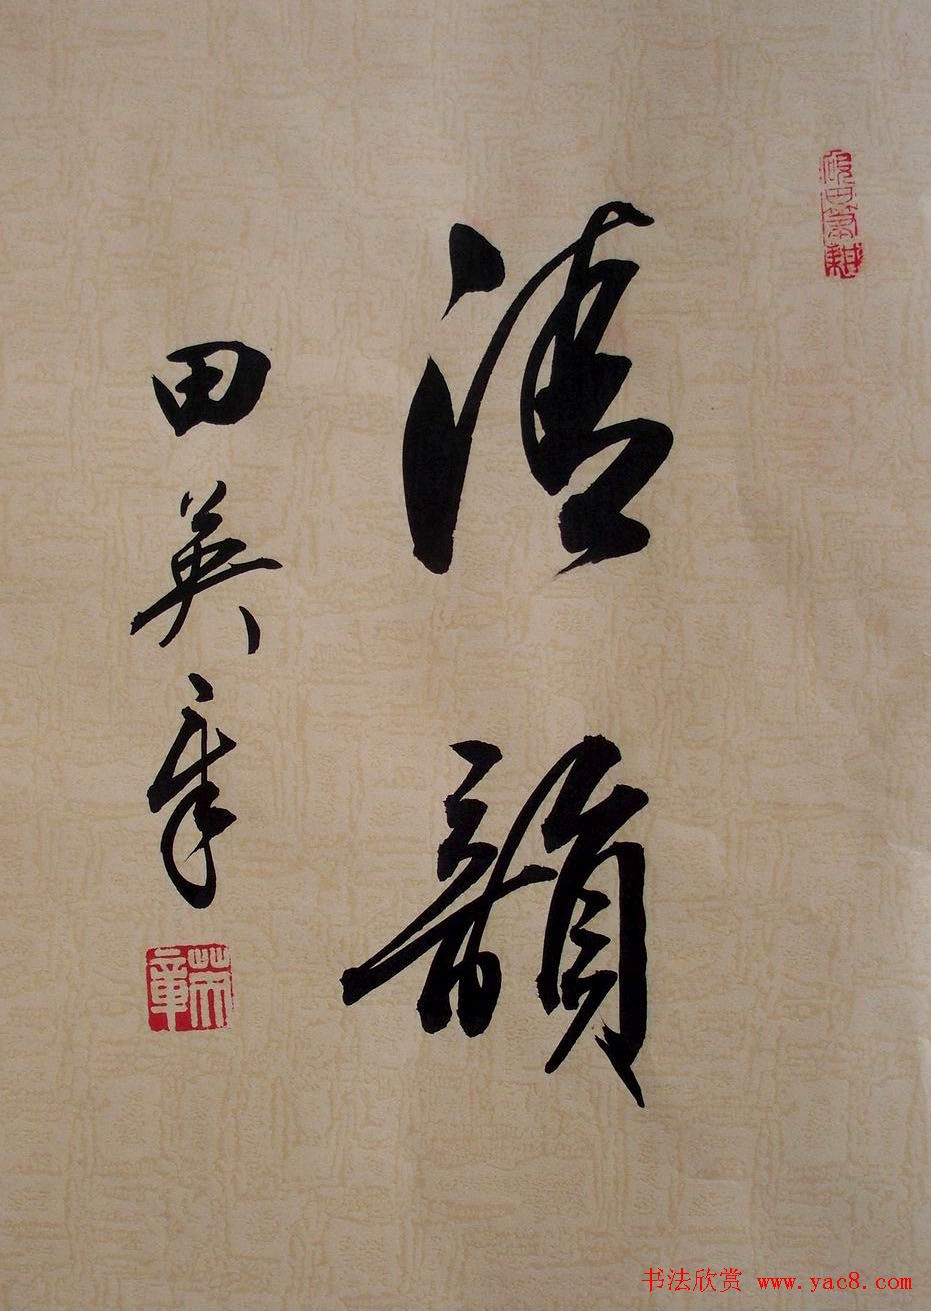 清韻
田英章
書法欣赏 www.yac8.com